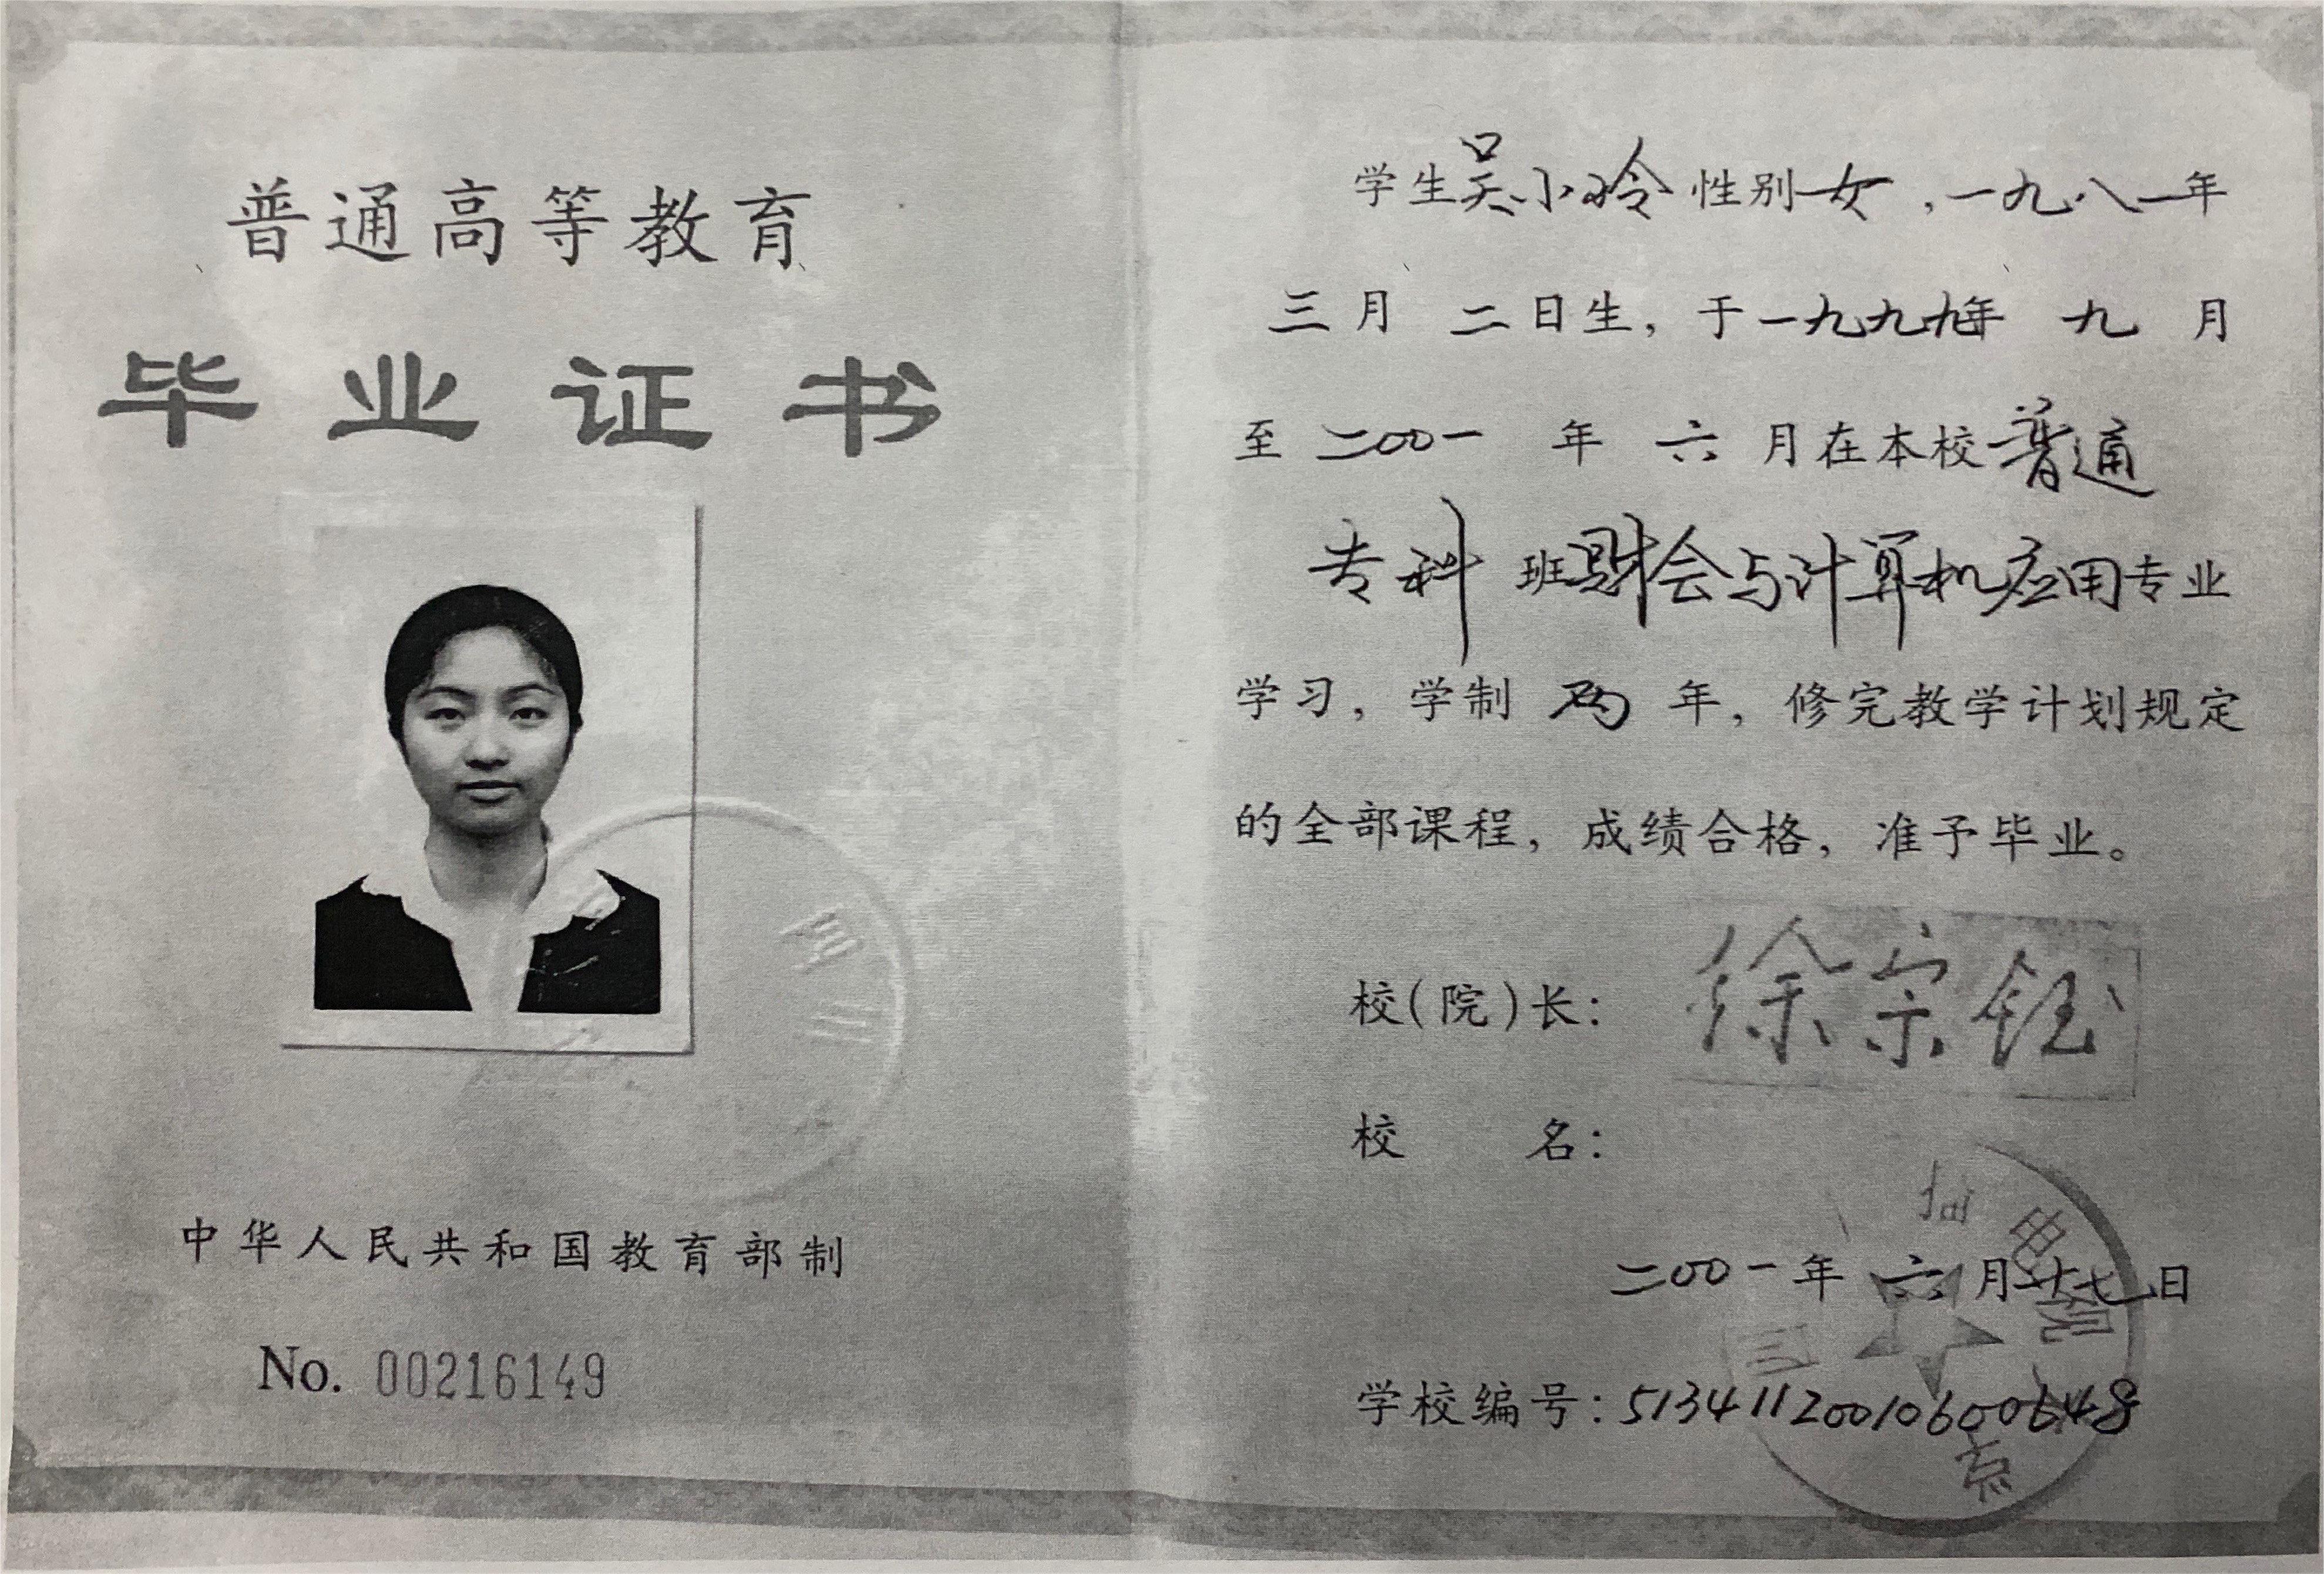 普通高等教育
毕业证书
中华人民共和国教育部制
No. 00216149
学生吴小玲性别女，一九八一年
三月二日生，于一九九九年九月
至二00一年六月在本校普通
专科班财会与计算机应用专业
学习，学制两年，修完教学计划规定
的全部课程，成绩合格，准予毕业。
校(院)长：徐宗钰
校名：
二00一年六月廿七日
学校编号：513411200106000648